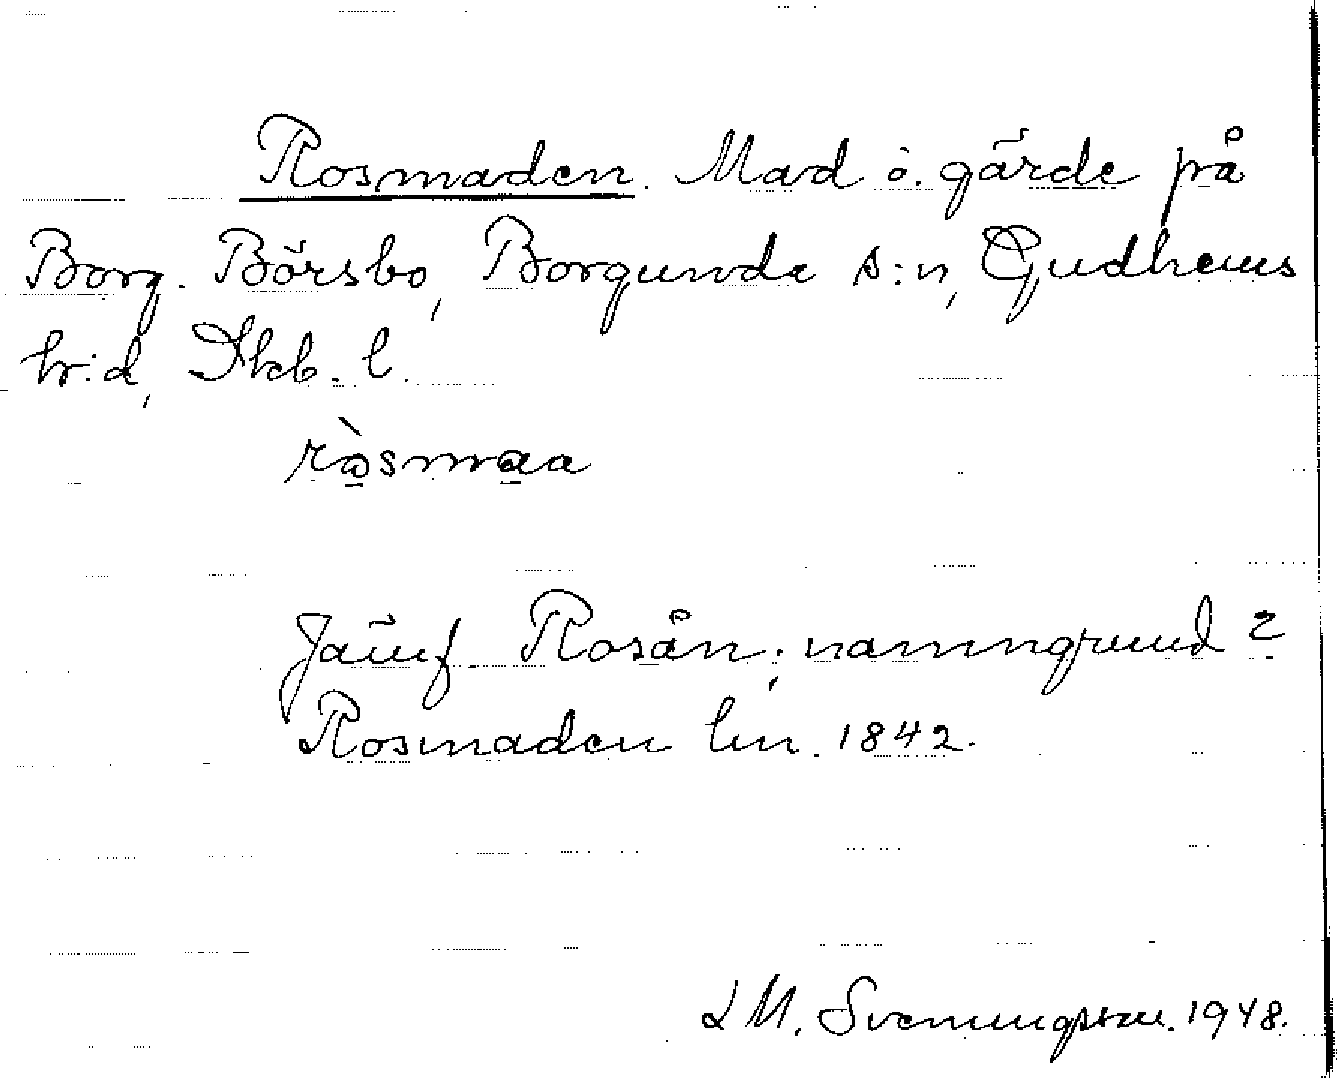 Rosmaden. Mad o. gärde på
Borg. Börsbo, Borgunda s:n, Gudhems
hr:d, Skb. l.
ròsmaa
Jämf. Rosån; namngrund?
Rosmaden lm. 1842.
L M. Svenungsson. 1948.